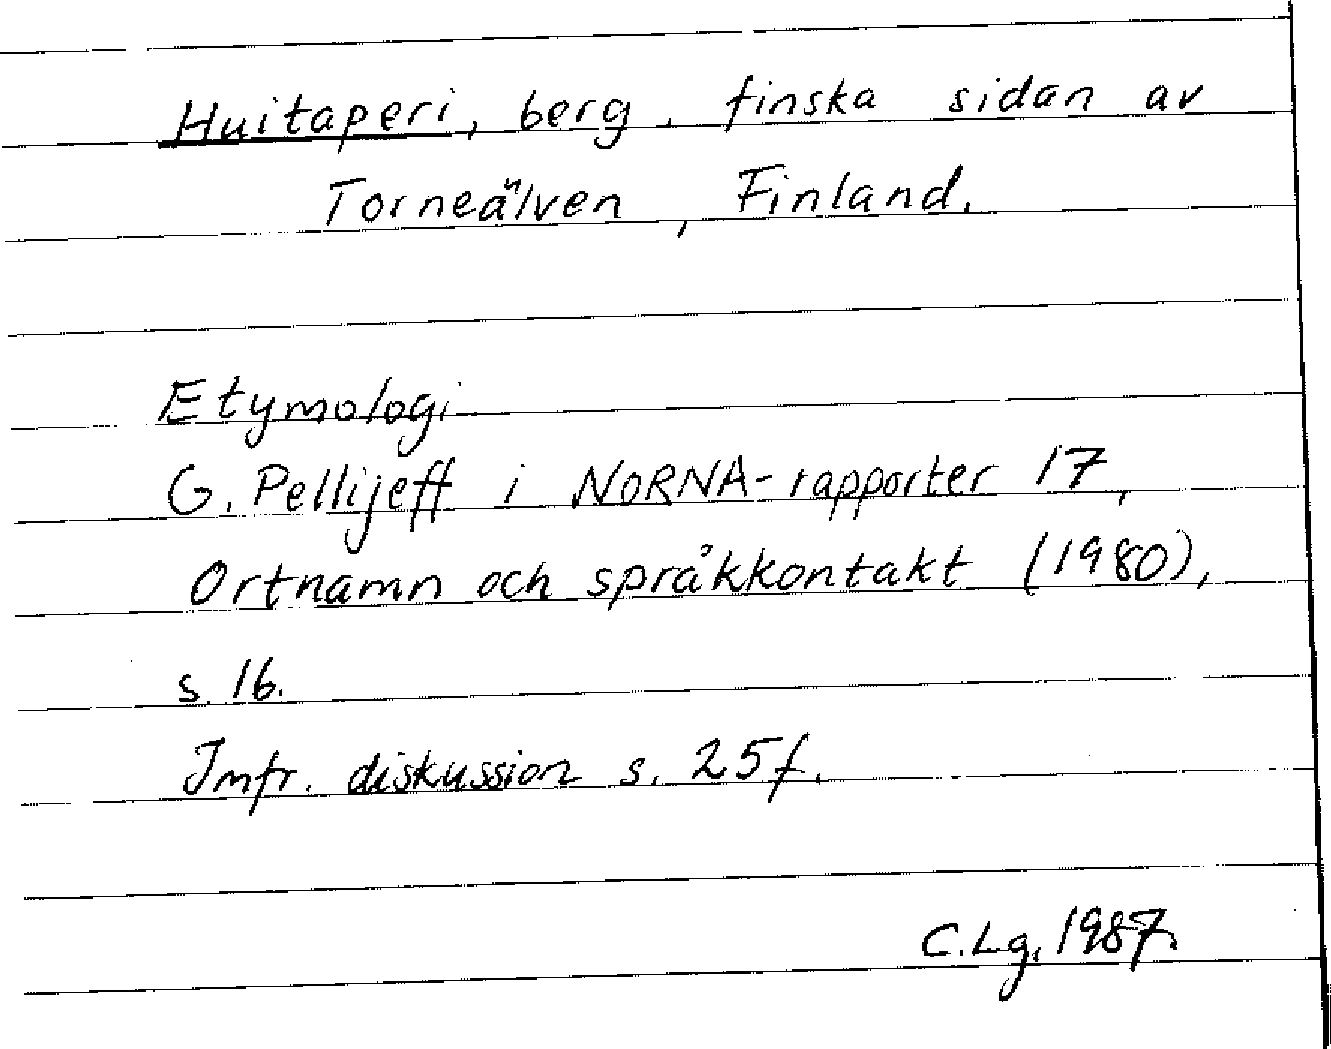 Huitaperi, berg, finska sidan av
Torneälven, Finland.
Etymologi
G. Pellijeff i NORNA-rapporter 17,
Ortnamn och språkkontakt (1980),
s. 16.
Jmfr. diskussion s. 25f.
C.Lg. 1987.